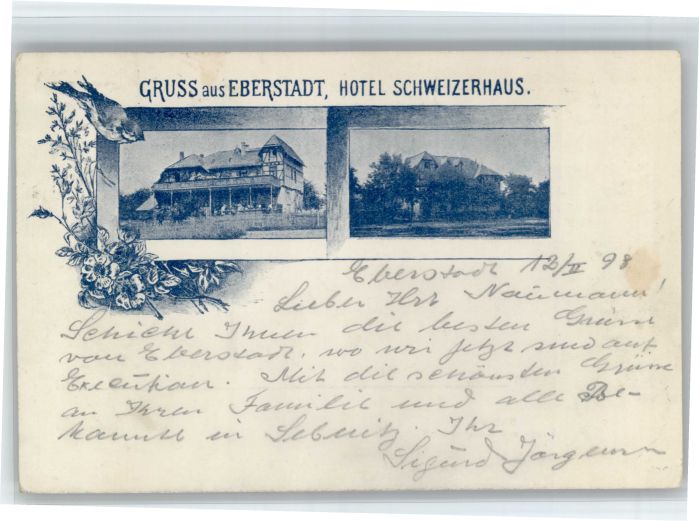 GRUSS aus EBERSTADT, HOTEL SCHWEIZERHAUS.
Eberstadt 12/II 98
Lieber Herr Naumann!
Schicke Ihnen die besten Grüsse
von Eberstadt, wo wir jetzt sind auf
Execution. Mit die schönsten Grüsse
an Ihren Familie und alle Be-
kannte in Sebnitz. Ihr
Sigurd Jörgensen